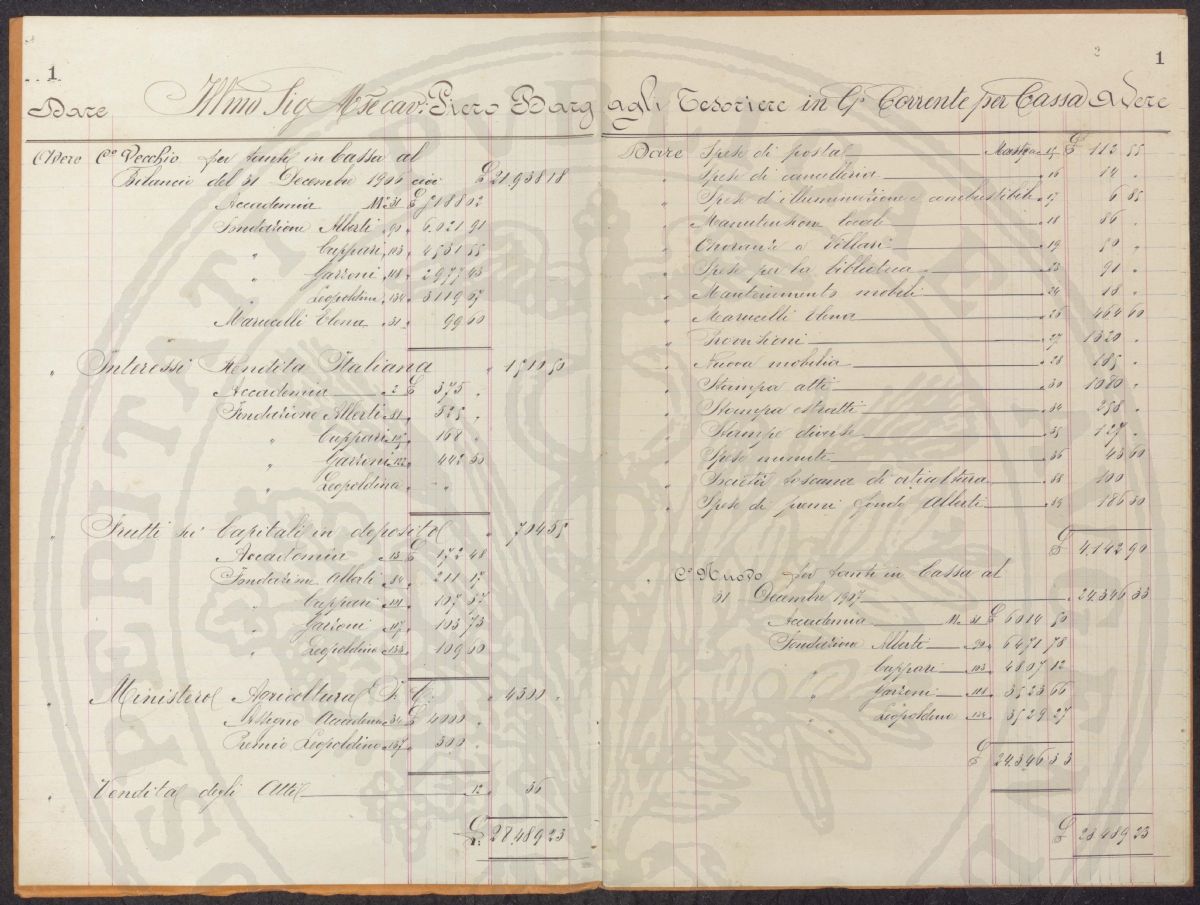 1
Dare Illmo Sig Mse cav: Piero Barg
Avere Co Vecchio per tanti in Cassa al
Bilancio del 31 Decembre 1906 cioè £ 21.938 18
Accademia Mo 31 £ 5188 02
Fondazione Alberti „ 90 „ 6021 91
„ Cuppari „ 103 „ 4531 55
„ Garzoni „ 118 „ 2977 43
„ Leopoldina „ 134 „ 3119 67
Marucelli Elena „ 31 „ 99 60
„ Interessi Rendita Italiana „ 1510 50
Accademia „ 2 £ 375 „
Fondazione Alberti „ 81 „ 525 „
„ Cuppari „ „ 168 „
„ Garzoni „ 122 „ 442 50
„ Leopoldina „ - „
„ Frutti di Capitali in deposito „ 704 55
Accademia „ 13 £ 172 48
Fondazione Alberti „ 84 „ 211 17
„ Cuppari „ 101 „ 107 57
„ Garzoni „ 117 „ 103 73
„ Leopoldina „ 133 „ 109 60
„ Ministero Agricoltura I. C. „ 4300 „
Assegno Accademia „ 34 £ 4000 „
Premio Leopoldino „ 137 „ 300 „
„ Vendita degli Atti 12 „ 36
£ 28.489 23
2
1
agli Tesoriere in Co Corrente per Cassa Avere
Dare Spese di posta Mastro 15 £ 112 55
„ Spese di cancelleria „ 16 14 „
„ Spese d'illuminazione e combustibile „ 17 6 85
„ Manutenzione locale „ 18 86 „
„ Onoranze a Villari „ 19 50 „
„ Spese per la biblioteca „ 23 91 „
„ Mantenimento mobili „ 24 18 „
„ Marucelli Elena „ 26 464 60
„ Provvisioni „ 27 1320 „
„ Nuova mobilia „ 28 185 „
„ Stampa atti „ 30 1080 „
„ Stampa estratti „ 34 258 „
„ Stampe diverse „ 35 127 „
„ Spese minute „ 36 43 60
„ Società toscana di orticultura „ 38 100
„ Spese di premi fondo Alberti „ 89 186 30
£ 4.142 90
„ Co Nuovo per tanti in Cassa al
31 Decembre 1907 „ 24.346 33
Accademia Mo 31 £ 6014 50
Fondazione Alberti „ 90 „ 6471 78
„ Cuppari „ 103 „ 4807 12
„ Garzoni „ 118 „ 3523 66
„ Leopoldina „ 134 „ 3529 27
£ 24.346 33
£ 28.489 23